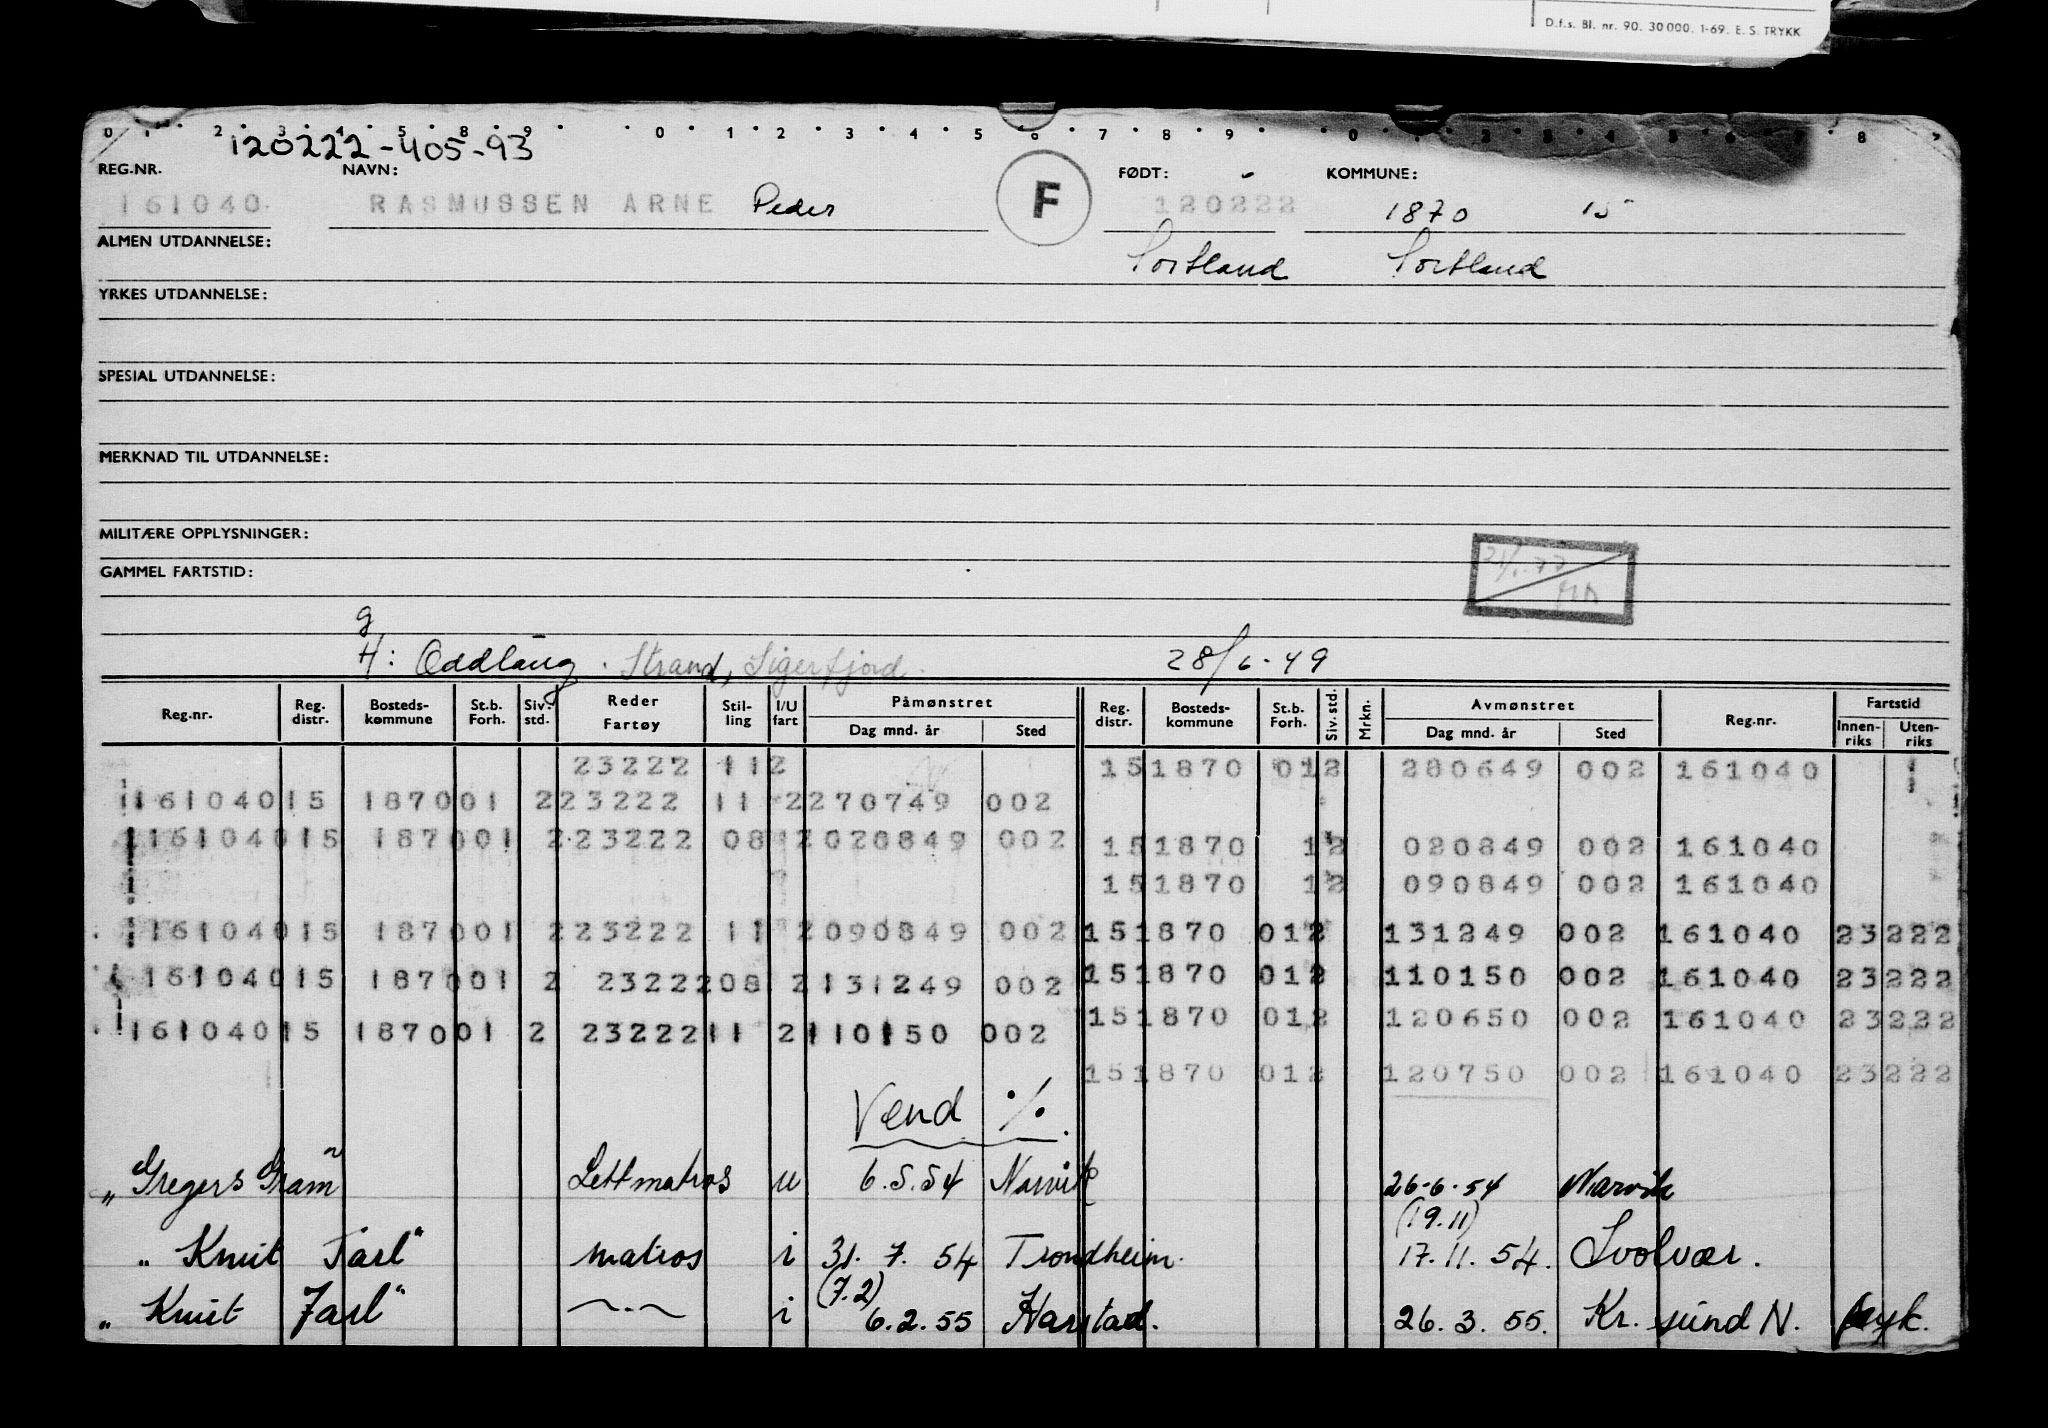 D.f.s. Bl. nr. 90. 30000. 1-69. E. S. TRYKK
0 1 2 3 4 5 8 9 0 1 2 3 4 5 6 7 8 9 0 2 3 4 5 6 7 8
120222-405-93
REG.NR. NAVN: FØDT: KOMMUNE:
161040 RASMUSSEN ARNE Peder F 120222 1870 15
ALMEN UTDANNELSE: Sortland Sortland
YRKES UTDANNELSE:
SPESIAL UTDANNELSE:
MERKNAD TIL UTDANNELSE:
MILITÆRE OPPLYSNINGER:
GAMMEL FARTSTID:
g
H: Oddlaug. Strand, Sigerfjord. 28/6-49
Reg.nr. Reg. distr. Bosteds-kommune St.b. Forh. Siv. std. Reder Fartøy Stil-ling I/U fart Påmønstret Dag mnd. år Sted Reg. distr. Bosteds-kommune St.b. Forh. Siv. std. Mrkn. Avmønstret Dag mnd. år Sted Reg.nr. Fartstid Innen-riks Uten-riks
23222 112 151870 012 280649 002 161040
161040 15 187001 2 23222 11 2 270749 002
161040 15 187001 2 23222 08 2 020849 002 151870 12 020849 002 161040
151870 12 090849 002 161040
161040 15 187001 2 23222 11 2 090849 002 151870 012 131249 002 161040 23222
161040 15 187001 2 23222 08 2 131249 002 151870 012 110150 002 161040 23222
161040 15 187001 2 23222 11 2 110150 002 151870 012 120650 002 161040 23222
151870 012 120750 002 161040 23222
Vend %.
„Gregers Gram Lettmatros u 6.5.54 Narvik 26-6-54 Narvik
(19.11)
„ Knut Jarl" matros i 31. 7. 54 Trondheim. 17. 11. 54. Svolvær.
(7.2)
„ Knut Jarl" —"— i 6.2.55 Harstad. 26. 3. 55. Kr. sund N. syk.